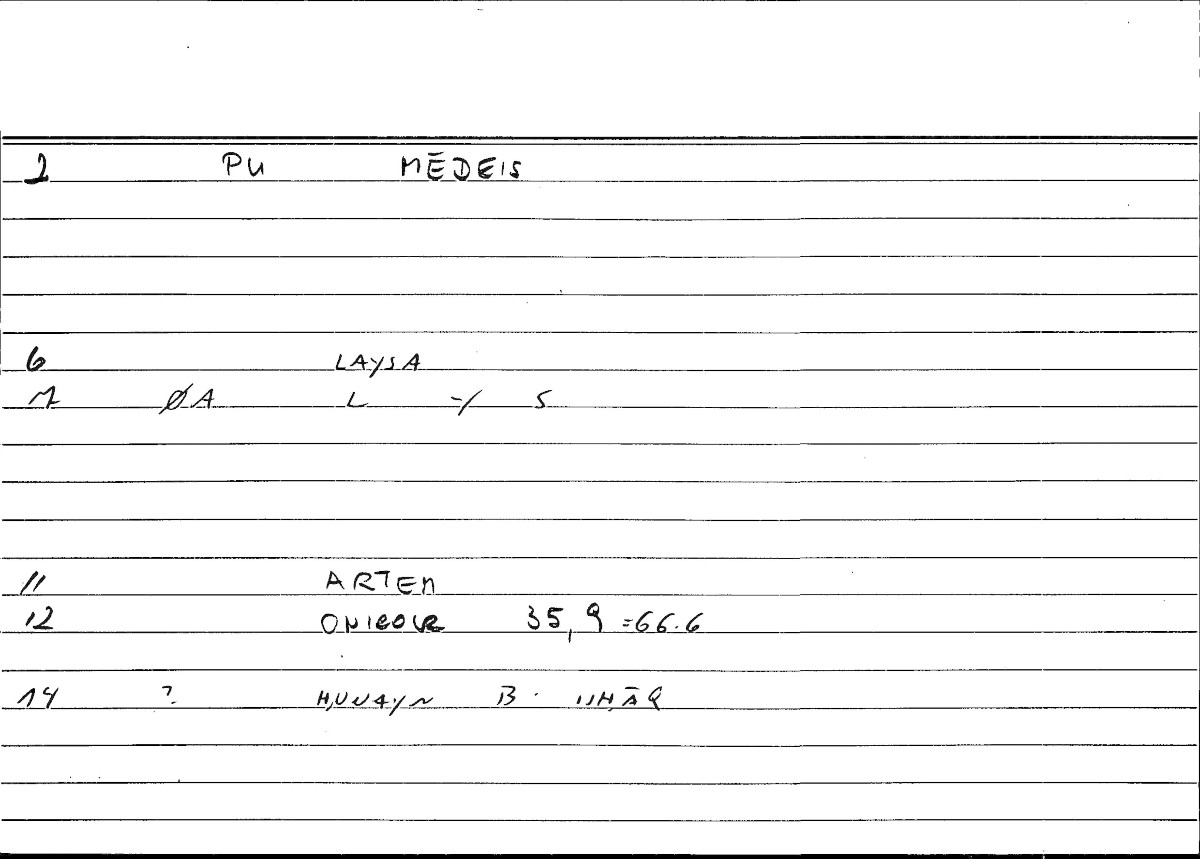 2 PU MĒDEIS
6 LAYSA
7 ØA L -/ S
11 ARTEM
12 ONIROKR 35,9 =66.6
14 ? ḤUNAYN B. ISḤĀQ